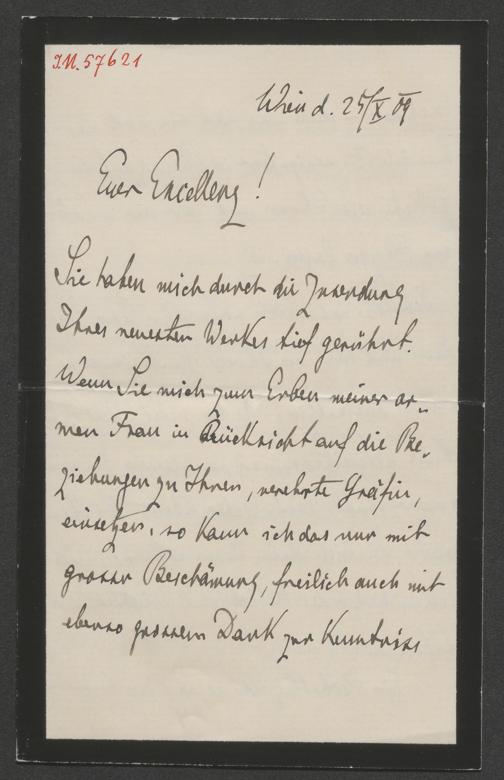 I.N. 57621
Wien d. 25/X 09
Euer Excellenz!
Sie haben mich durch die Zusendung
Ihres neuesten Werkes tief gerührt.
Wenn Sie mich zum Erben meiner ar-
men Frau in Rücksicht auf die Be-
ziehungen zu Ihnen, verehrte Gräfin,
einsetzen, so kann ich das nur mit
grosser Beschämung, freilich auch mit
ebenso grossem Dank zur Kenntniss